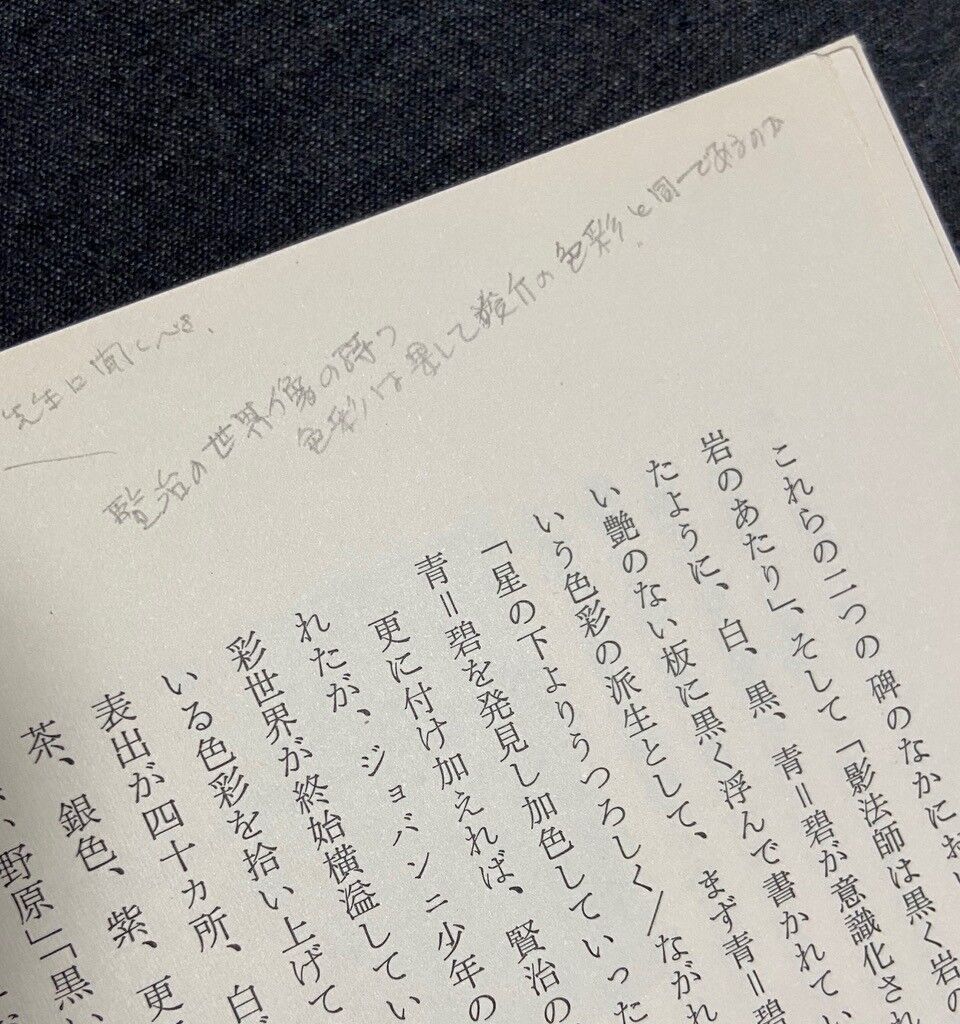 先生に聞くべき.
賢治の世界像の持つ
色彩は果して竣介の色彩と同一であるのか.
これらの二つの碑のなかにお
岩のあたり」、そして「影法師は黒く岩の
たように、白、黒、青＝碧が意識化され
い艶のない板に黒く浮んで書かれてい
いう色彩の派生として、まず青＝碧
「星の下よりうつろしく／ながれ
青＝碧を発見し加色していった
更に付け加えれば、賢治の
れたが、ジョバンニ少年の
彩世界が終始横溢してい
いる色彩を拾い上げて
表出が四十ヵ所、白
茶、銀色、紫、更
、野原」「黒い